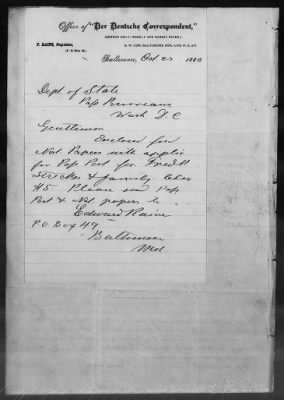 Office of "Der Deutsche Correspondent,"
(GERMAN DAILY, WEEKLY AND SUNDAY PAPER,)
F. RAINE, Proprietor,
S. W. COR. BALTIMORE STR. AND P. O. AV.
Baltimore, Oct 23 1883
Dept of State
Pass Bureau
Wash D.C
Gentlemen
Enclose find
Nat Papers with applic
for Pass Port for Fred H
Strecker & family also
$5. Please send Pass
Port & Nat papers to
Edward Raine
P.O. Box 49.
Baltimore
Md